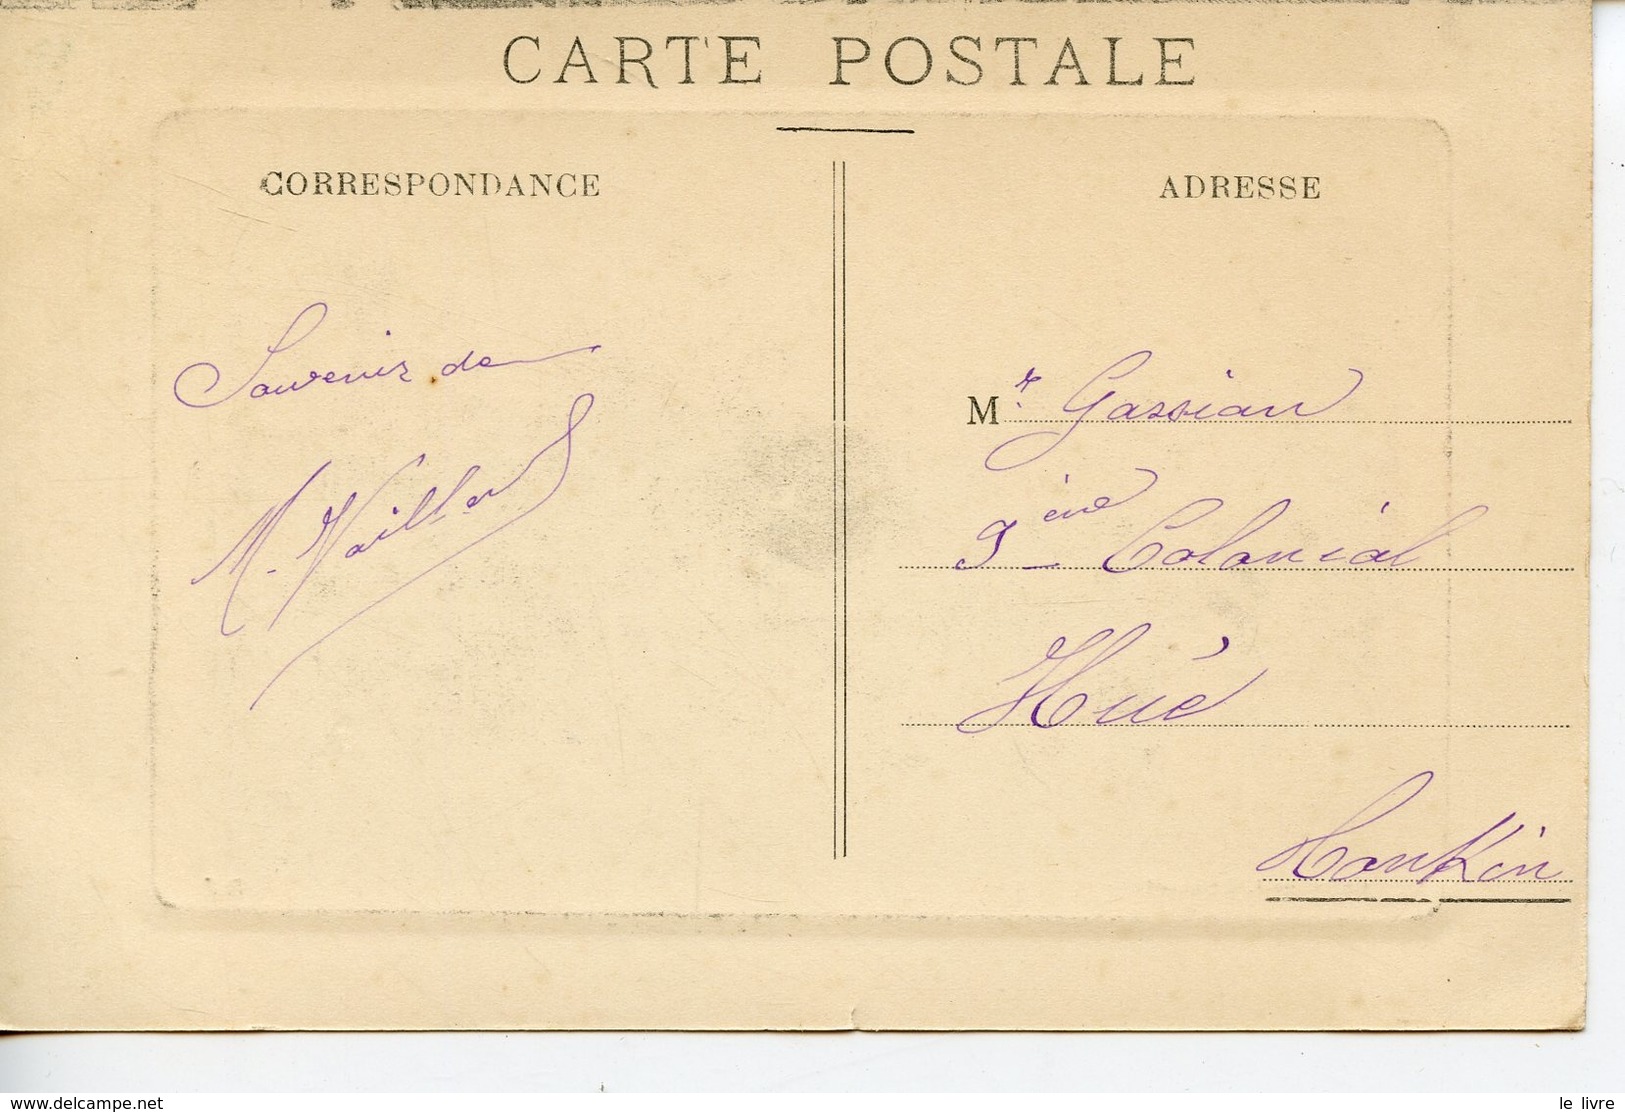 CARTE POSTALE
CORRESPONDANCE
Souvenir de
M. Vailland
ADRESSE
Mr. Gassian
9ème Colonial
Hüé
Tonkin
www.delcampe.net
le livre